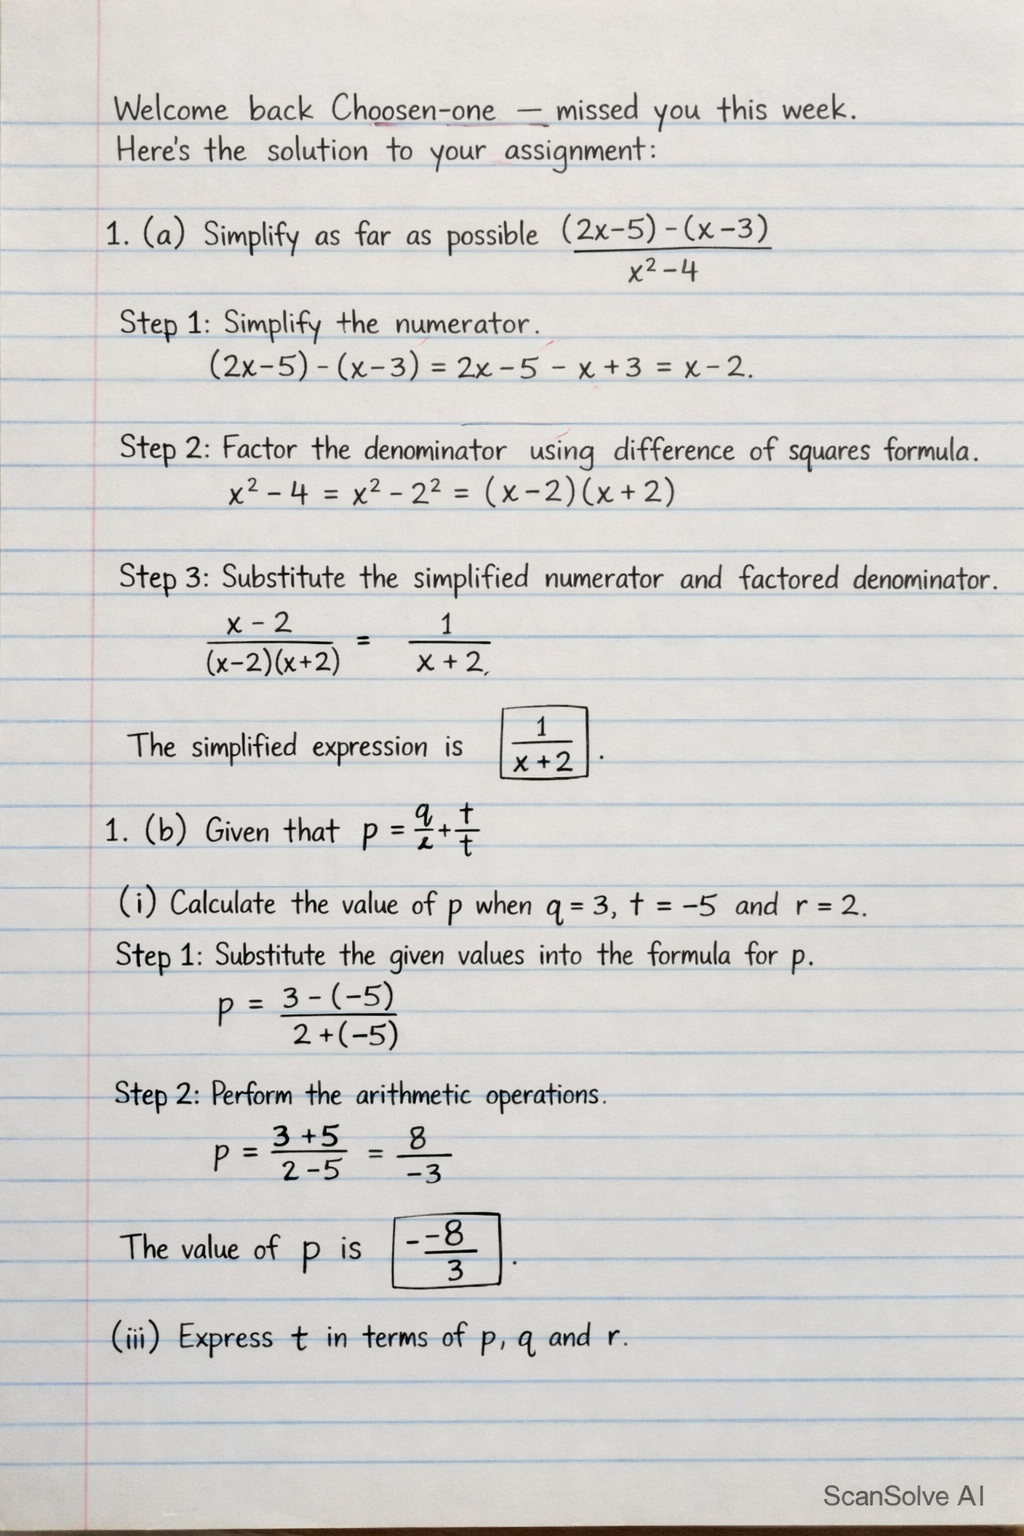 Welcome back Choosen-one — missed you this week.
Here's the solution to your assignment:
1. (a) Simplify as far as possible (2x-5) - (x-3) / x² - 4
Step 1: Simplify the numerator.
(2x-5) - (x-3) = 2x - 5 - x + 3 = x - 2.
Step 2: Factor the denominator using difference of squares formula.
x² - 4 = x² - 2² = (x-2)(x+2)
Step 3: Substitute the simplified numerator and factored denominator.
x - 2 / (x-2)(x+2) = 1 / x + 2,
The simplified expression is 1 / x + 2 .
1. (b) Given that p = q/ + t/t
(i) Calculate the value of p when q = 3, t = -5 and r = 2.
Step 1: Substitute the given values into the formula for p.
p = 3 - (-5) / 2 + (-5)
Step 2: Perform the arithmetic operations.
p = 3 + 5 / 2 - 5 = 8 / -3
The value of p is - -8 / 3 .
(iii) Express t in terms of p, q and r.
ScanSolve AI